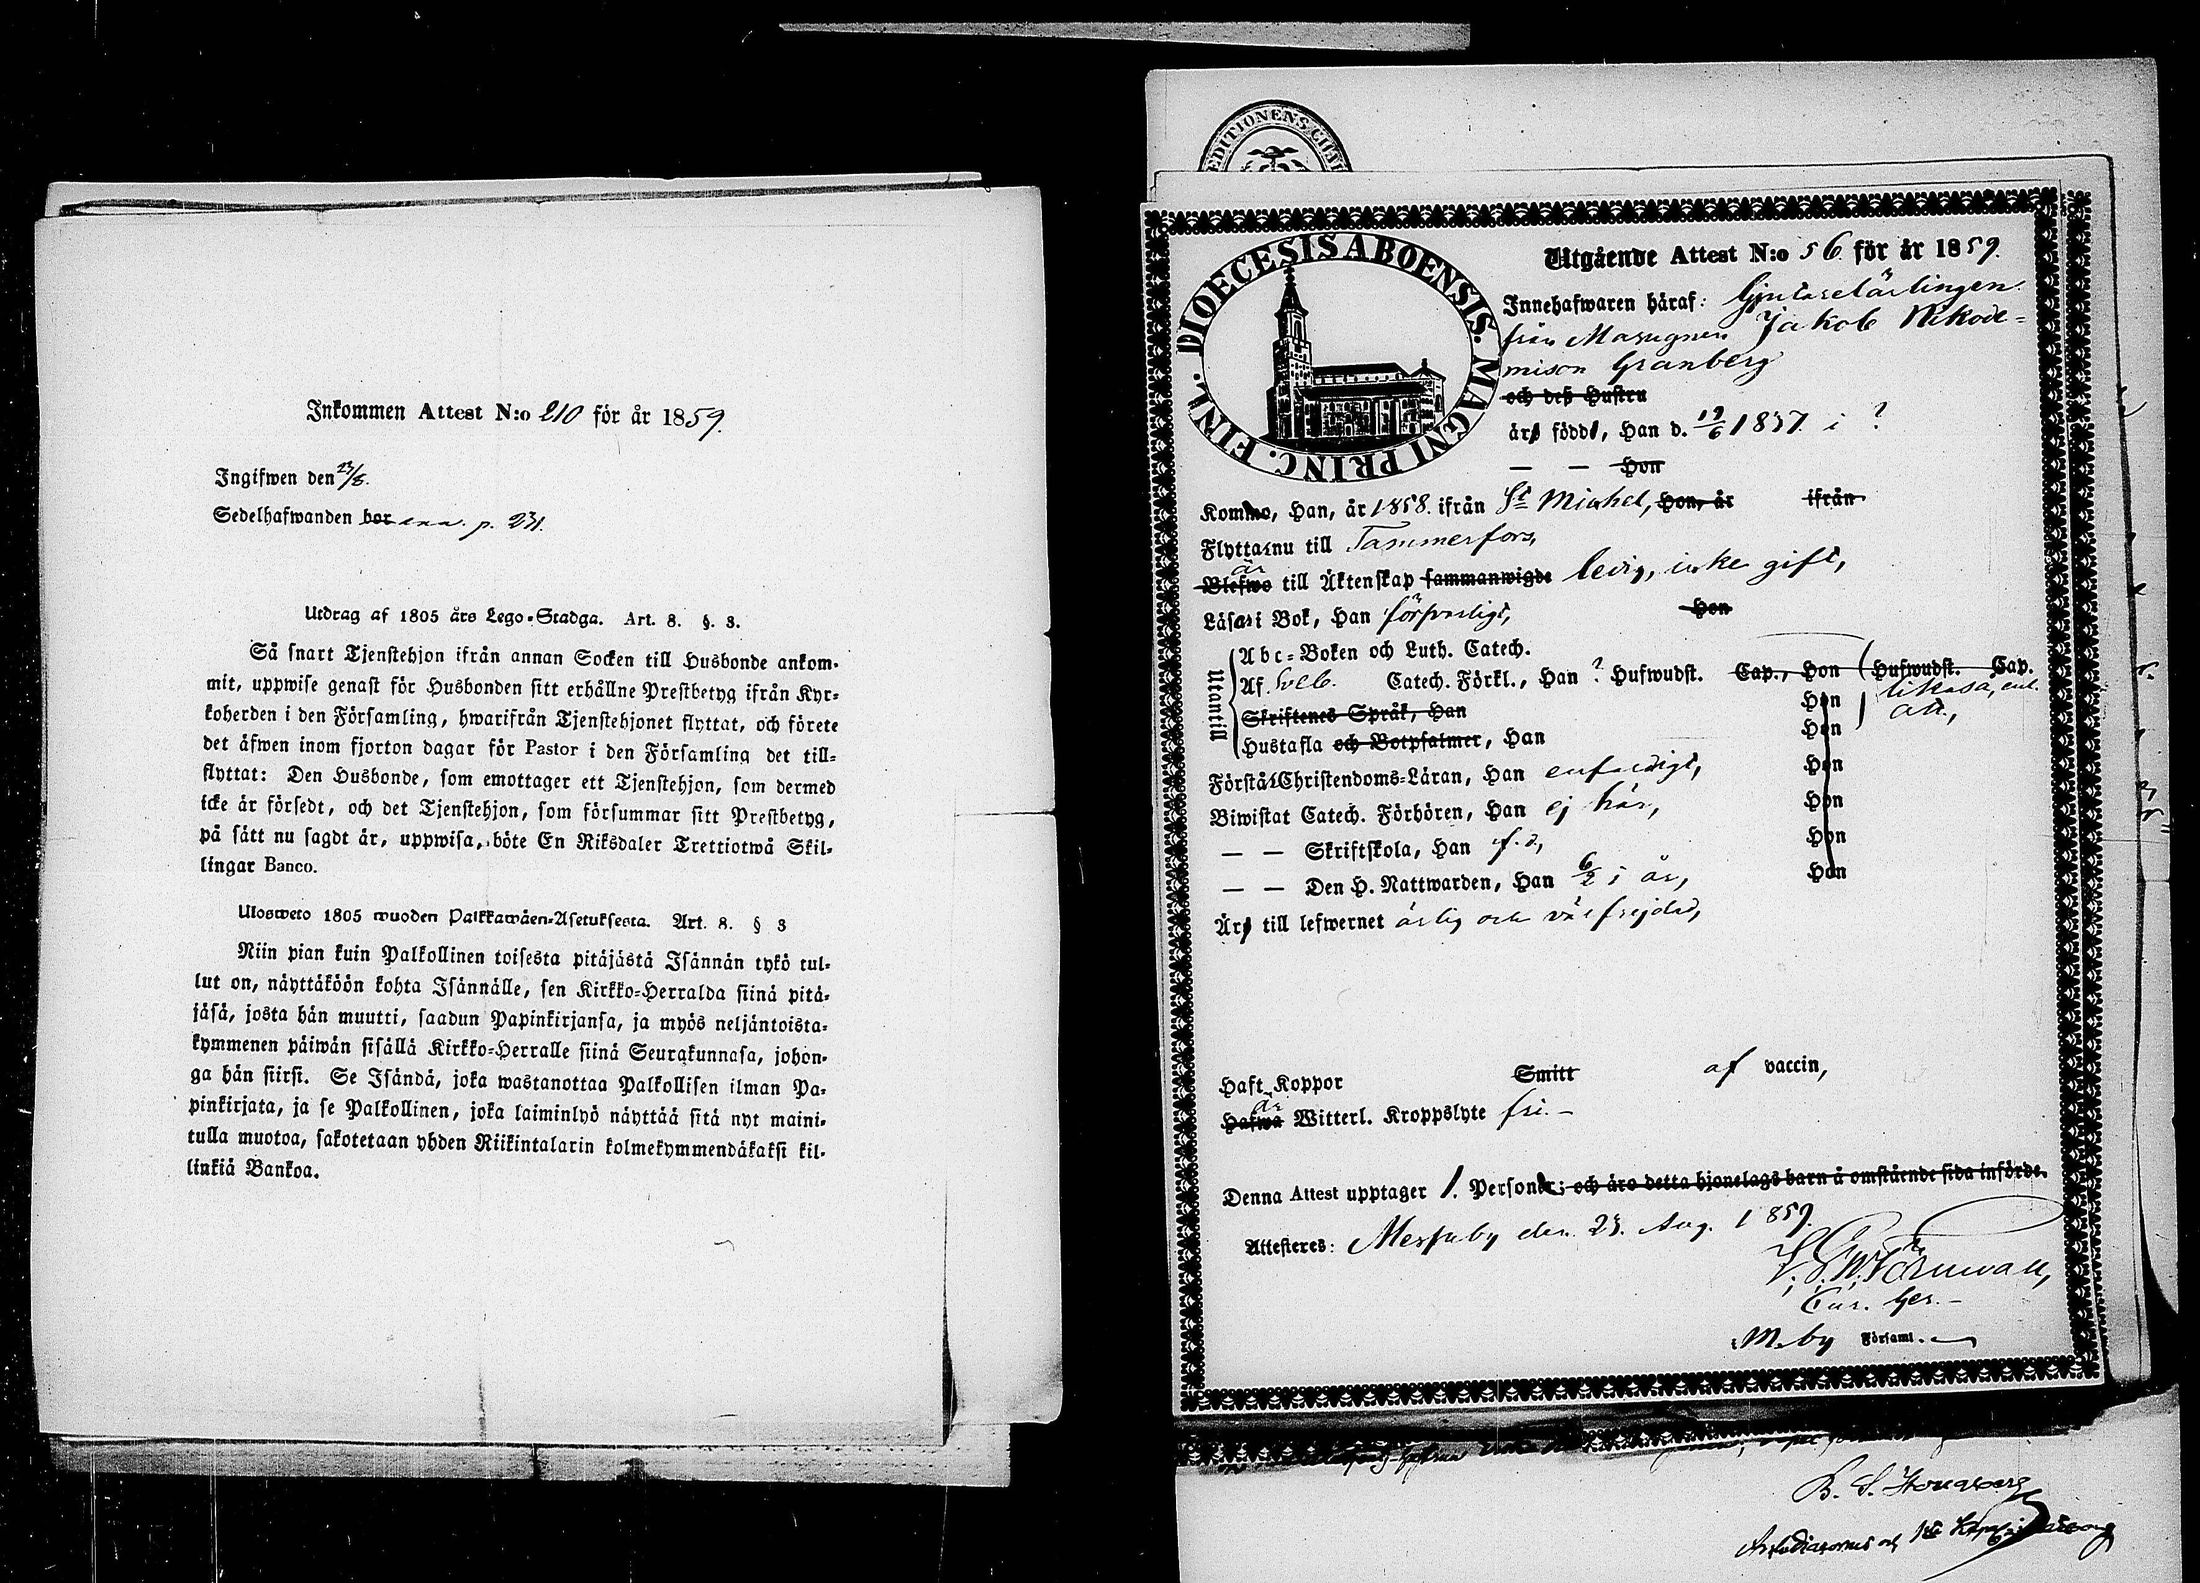 Inkommen Attest N:o 210 för år 1859.
Ingifwen den 23/8.
Sedelhafwanden bor p. 231.
Utdrag af 1805 års Lego-Stadga. Art. 8. §. 3.
Så snart Tjenstehjon ifrån annan Socken till Husbonde ankom-
mit, uppwise genast för Husbonden sitt erhållne Prestbetyg ifrån Kyr-
koherden i den Församling, hwarifrån Tjenstehjonet flyttat, och förete
det äfwen inom fjorton dagar för Pastor i den Församling det till-
flyttat: Den Husbonde, som emottager ett Tjenstehjon, som dermed
icke är försedt, och det Tjenstehjon, som försummar sitt Prestbetyg,
på sätt nu sagdt är, uppwisa, böte En Riksdaler Trettiotwå Skil-
lingar Banco.
Ulosweto 1805 wuoden Palkkawäen-Asetuksesta. Art. 8. § 3
Niin pian kuin Palkollinen toisesta pitäjästä Isännän tykö tul-
lut on, näyttäköön kohta Isännälle, sen Kirkko-Herralda siinä pitä-
jäsä, josta hän muutti, saadun Papinkirjansa, ja myös neljäntoista-
kymmenen päiwän sisällä Kirkko-Herralle siinä Seurakunnasa, johon-
ga hän siirsi. Se Isändä, joka wastanottaa Palkollisen ilman Pa-
pinkirjata, ja se Palkollinen, joka laiminlyö näyttää sitä nyt maini-
tulla muotoa, sakotetaan yhden Riikintalarin kolmekymmendäkaksi kil-
linkiä Bankoa.
EDITIONENS CHA
DIOECESIS ABOENSIS. MAGNI PRINC. FINL.
Utgående Attest N:o 56 för år 1859.
Innehafwaren häraf: Gjutarelärlingen
från Masugnen Jakob Nikode-
mison Granberg
och deß Hustru
äro född, Han d. 19/6 1837. i ?
— — Hon
Komne, Han, år 1858. ifrån St Michel, Hon, år ifrån
Flyttar nu till Tammerfors,
är
Blefwo till Äktenskap sammanwigde ledig, icke gift,
Läsa i Bok, Han försvarligt, Hon
Utantill
Abc-Boken och Luth. Catech.
Af Sveb. Catech. Förkl., Han ? Hufwudst. Cap., Hon Hufwudst. Cap.
likaså, enl.
Skriftenes Språk, Han Hon att.,
Hustafla och Botpsalmer, Han Hon
Förstår Christendoms-Läran, Han enfaldigt, Hon
Biwistat Catech. Förhören, Han ej här, Hon
— — Skriftskola, Han f. d., Hon
— — Den H. Nattwarden, Han 6/2 i år, Hon
Äro till lefwernet ärlig och väl frejdad,
Haft Koppor Smitt af vaccin,
är
Hafwa Witterl. Kroppslyte fri. —
Denna Attest upptager 1. Personer; och äro detta hjonelags barn å omstående sida införde.
Attesteres: Messuby den 23. Aug. 1859.
Törnwall,
Cur. Ger. —
M.by Församl. —